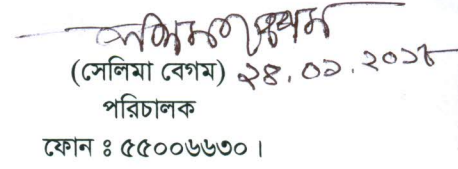 সেলিমা বেগম
(সেলিমা বেগম) ২৪.০১.২০১৮
পরিচালক
ফোন ঃ ৫৫০০৬৬৩০।